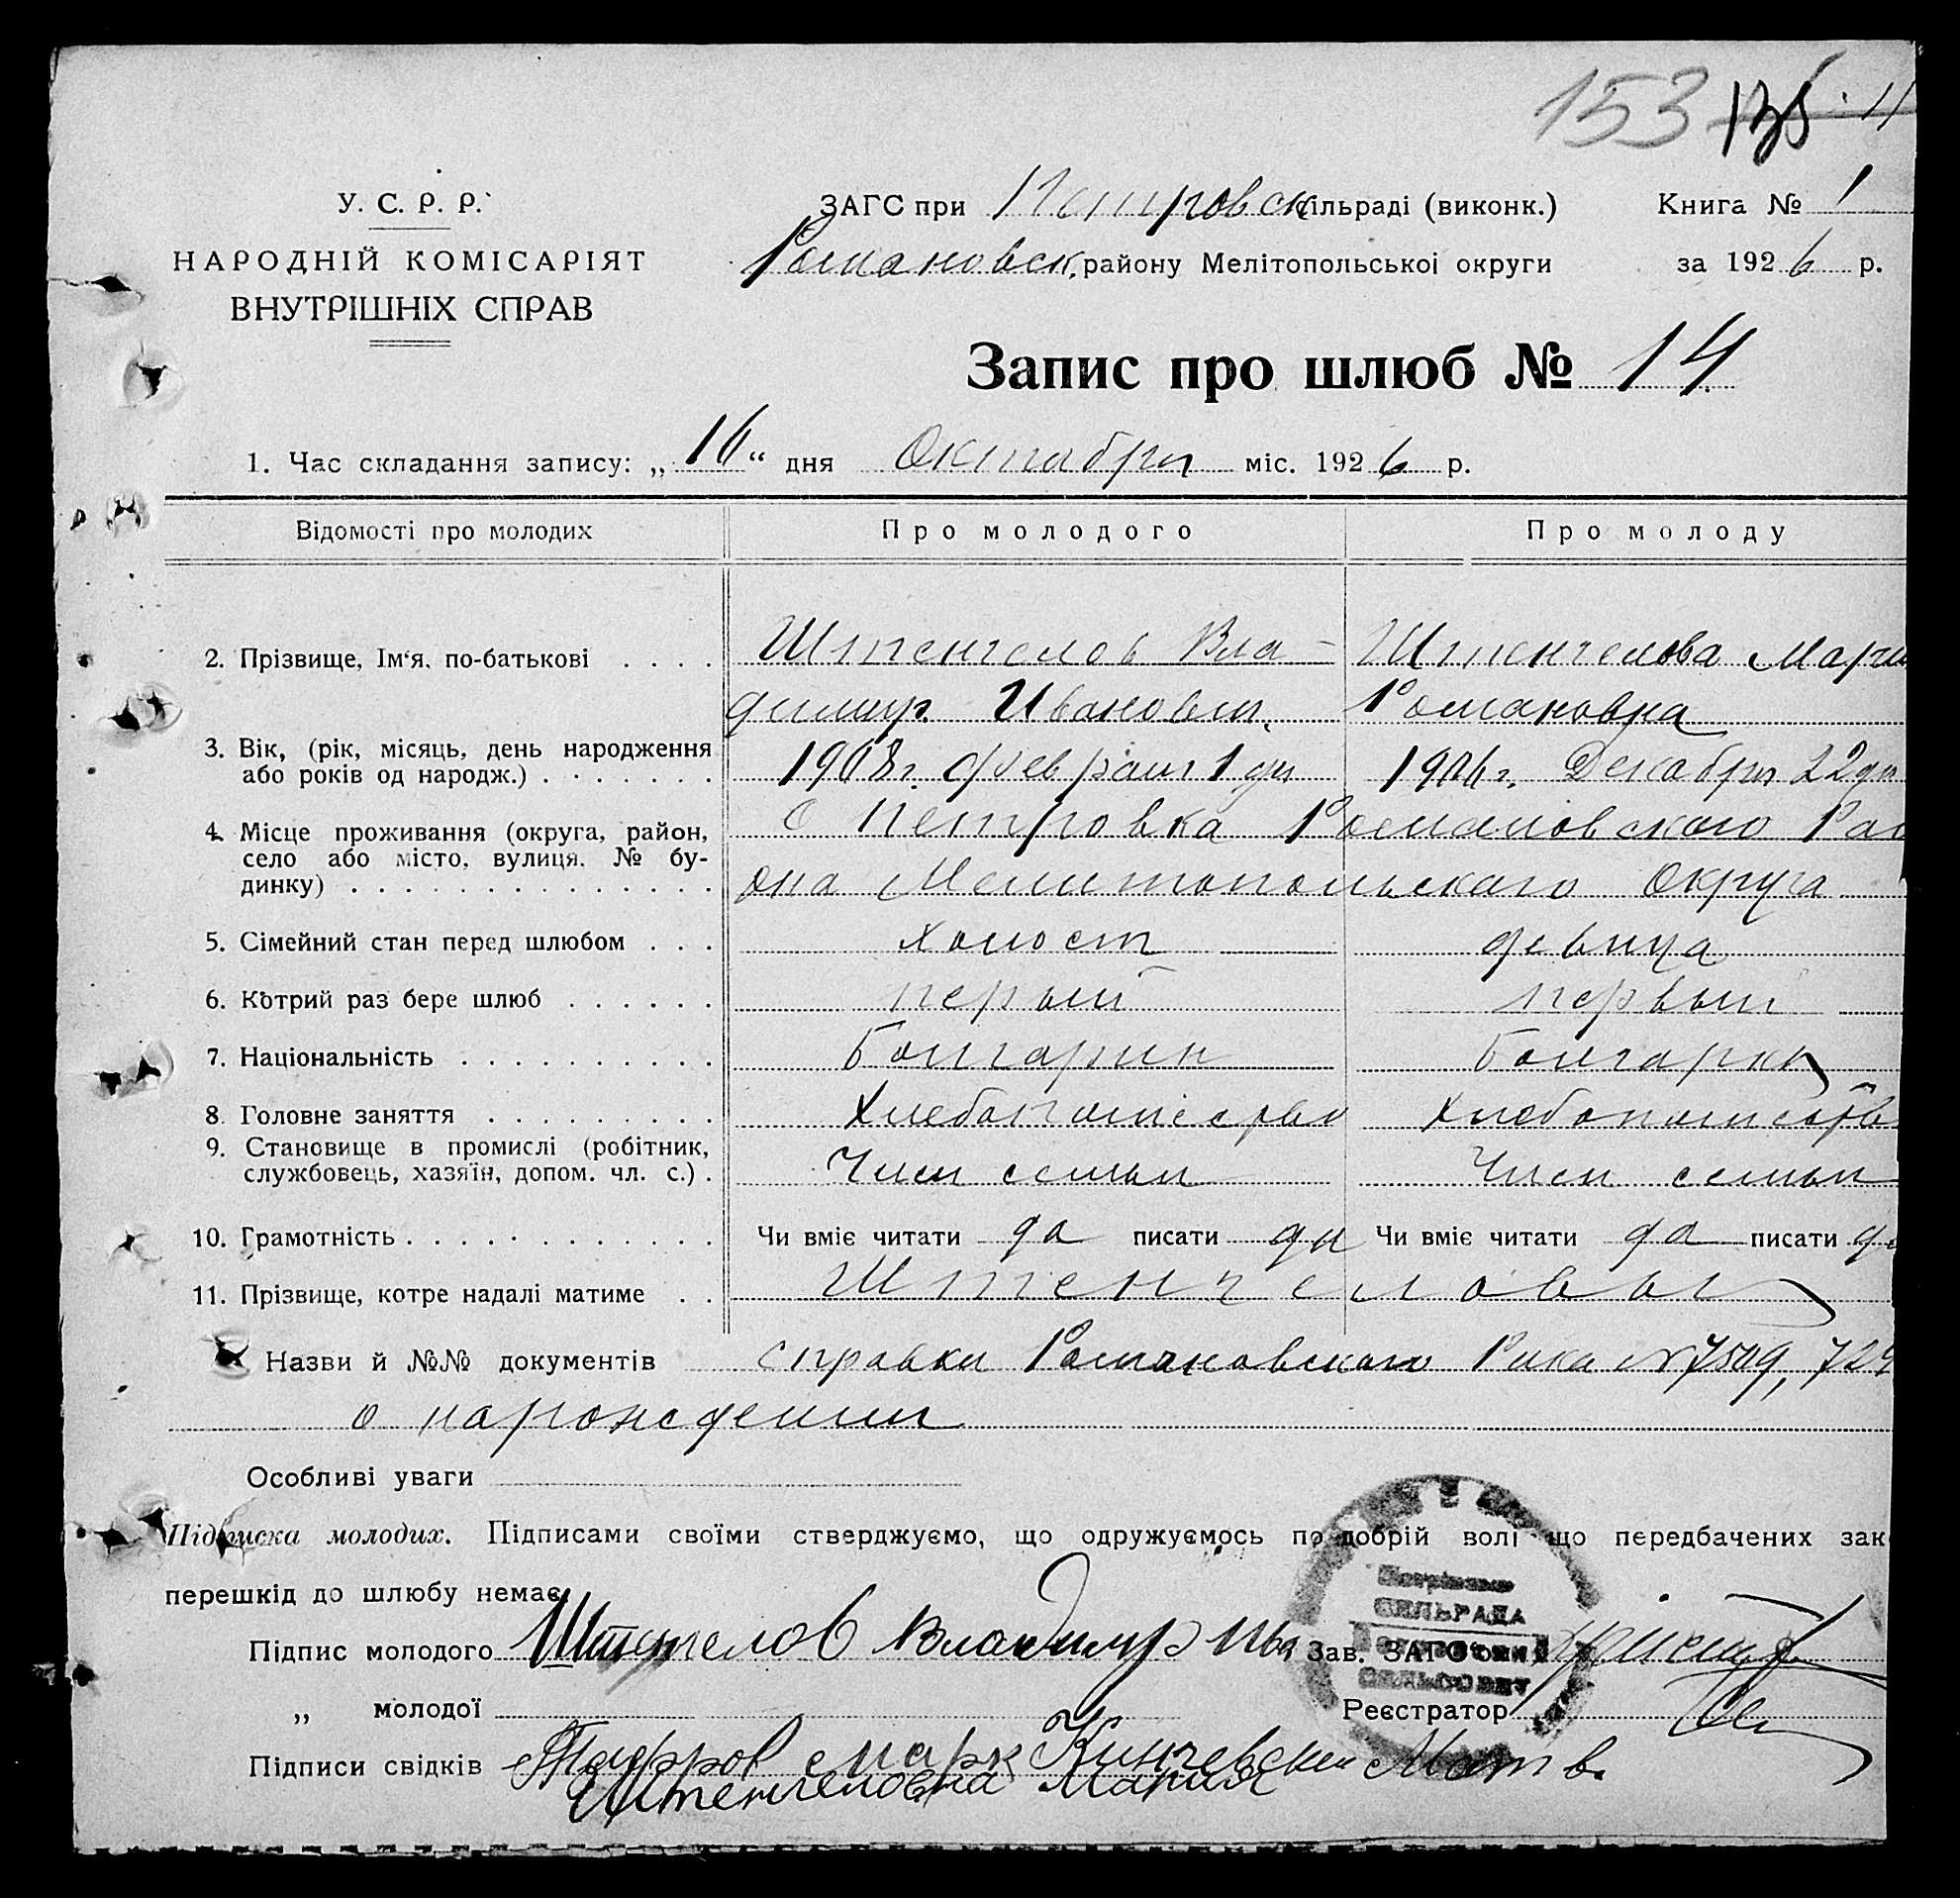 153 135
У. С. Р. Р.
НАРОДНІЙ КОМІСАРІЯТ
ВНУТРІШНІХ СПРАВ
ЗАГС при Петровск сільраді (виконк.) Книга № 1
Романовск. району Мелітопольської округи за 1926 р.
Запис про шлюб № 14
1. Час складання запису: „16“ дня Октября міс. 1926 р.
Відомості про молодих Про молодого Про молоду
2. Прізвище, Ім'я, по-батькові . . . . Штенгелов Вла- Штенгелова Мария
димир Иванович. Романовна
3. Вік, (рік, місяць, день народження 1908 г. февраля 1 дн 1906 г. Декабря 22 дн
або років од народж.) . . . . . . .
4. Місце проживання (округа, район, с Петровка Романовского Рай
село або місто, вулиця. № бу-
динку) . . . . . . . . . . . . . . она Мелитопольского Округа
5. Сімейний стан перед шлюбом . . . холост девица
6. Котрий раз бере шлюб . . . . . . перый первый
7. Національність . . . . . . . . . . Болгарин Болгарка
8. Головне заняття . . . . . . . . . Хлебопашество Хлебопашеств
9. Становище в промислі (робітник,
службовець, хазяїн, допом. чл. с.) . Член семьи Член семьи
10. Грамотність . . . . . . . . . . . . Чи вміє читати да писати да Чи вміє читати да писати да
11. Прізвище, котре надалі матиме . . Штенгеловы
Назви й №№ документів справки Романовского Рика № 7509, 724
о нарождении
Особливі уваги
Підписка молодих. Підписами своїми стверджуємо, що одружуємось по добрій волі що передбачених зак
перешкід до шлюбу немає
СІЛЬРАДА
СЕЛЬСОВЕТ
Підпис молодого Штенгелов Владимир Ив Зав. ЗАГС'ом
„ молодої Реєстратор
Підписи свідків Марк Кинчевский Матв.
Штенгеловна Мария